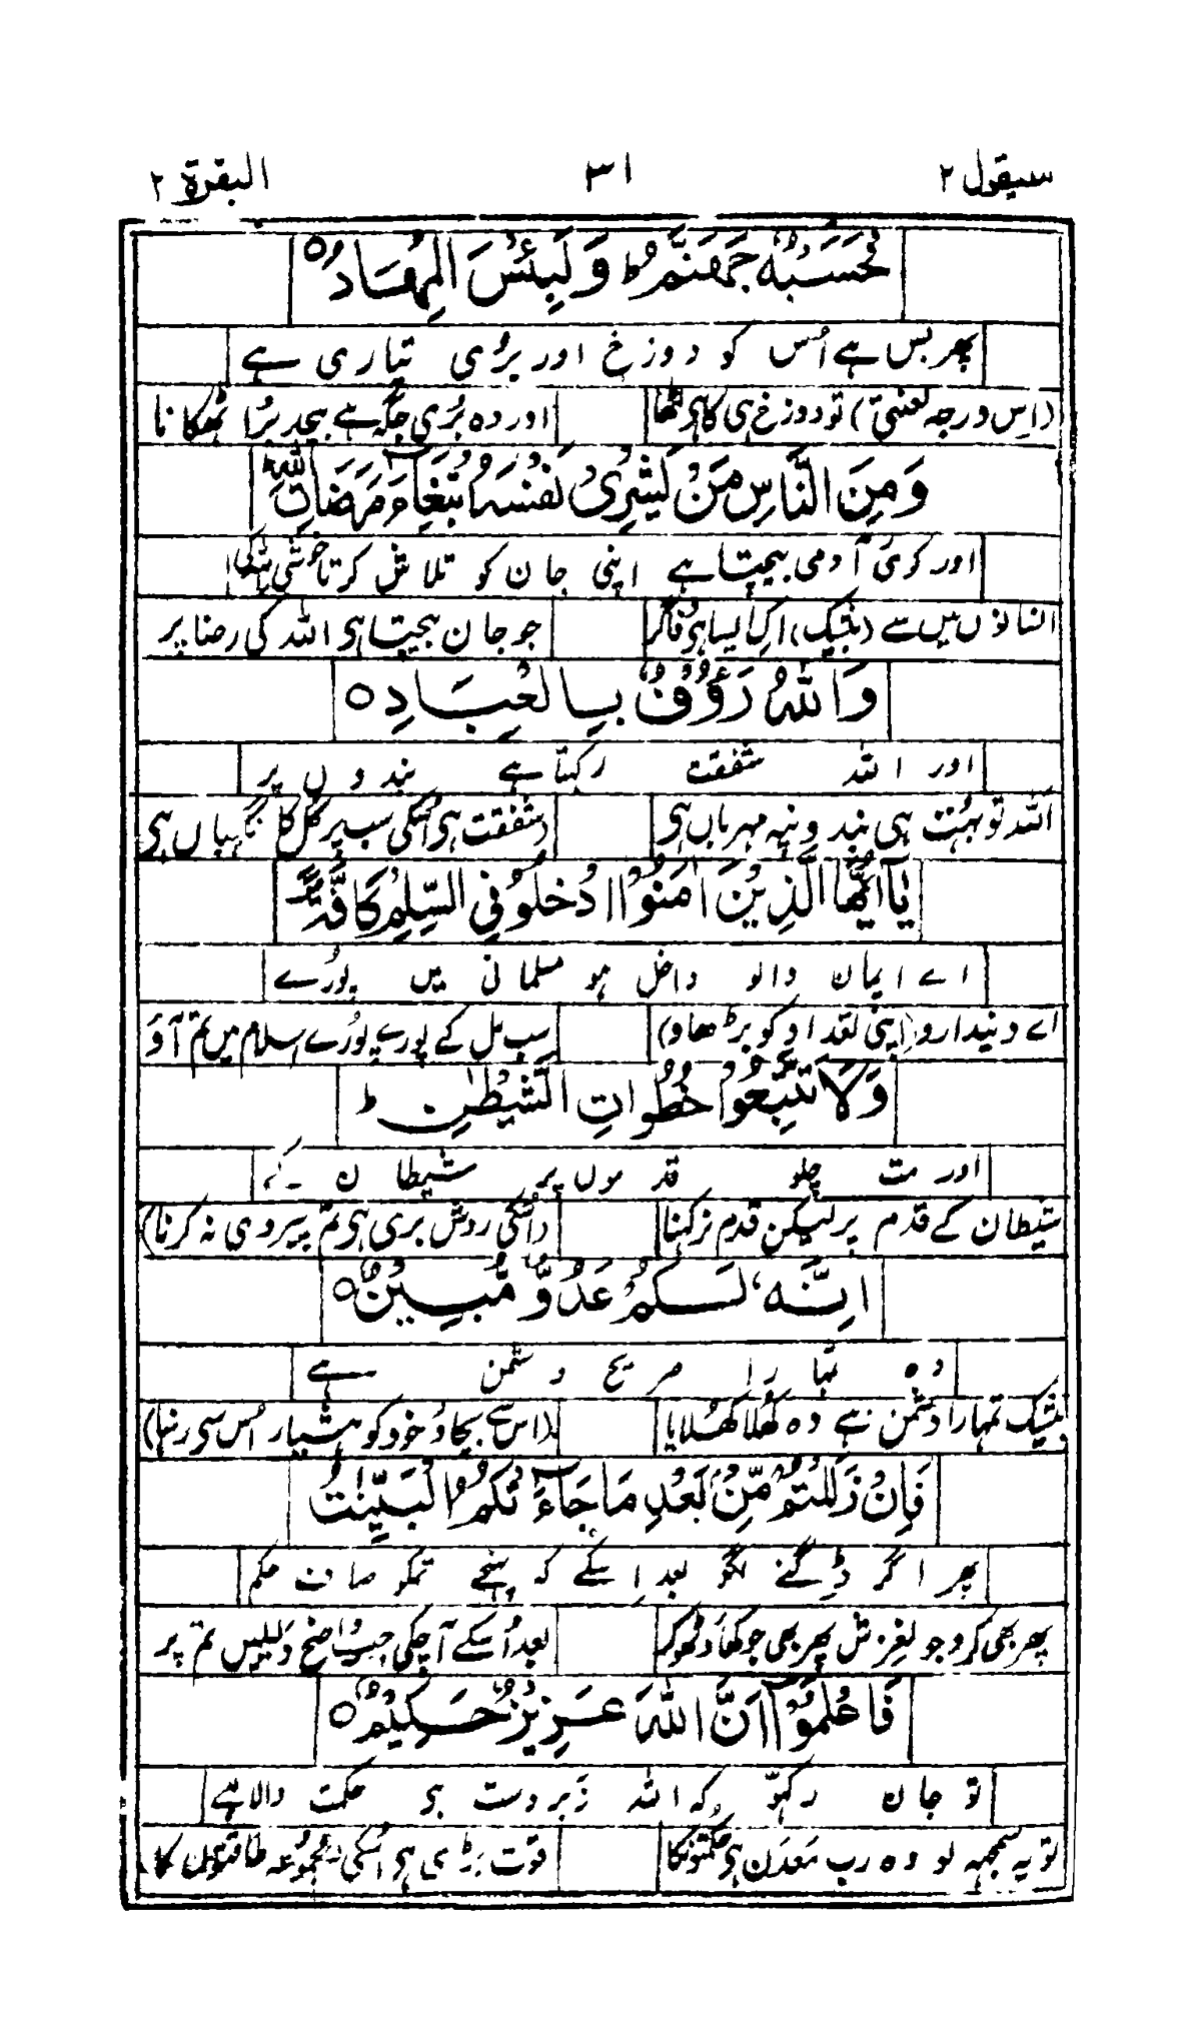 سیقول ۲ ۳۱ البقرة ۲
فَحَسْبُهٗ جَهَنَّمُ ؕ وَ لَبِئْسَ الْمِهَادُ ○
پھر بس ہے اُس کو دوزخ اور بُری تیاری ہے
(اِس درجہ لعنتی) تو دوزخ ہی کا ہو اور وہ بُری جگہ ہے بیحد بُرا ٹھکانا
وَمِنَ النَّاسِ مَنْ يَّشْرِىْ نَفْسَهُ ابْتِغَآءَ مَرْضَاتِ اللّٰهِ
اور کوئی آدمی بیچتا ہے اپنی جان کو تلاش کرتا خوشی اللہ کی
انسانوں میں سے (بیشک) اک ایسا ہو جو جان بیچتا ہی اللہ کی رضا پر
وَاللّٰهُ رَءُوْفٌۢ بِالْعِبَادِ ○
اور اللہ شفقت رکہتا ہے بندوں پر
اللہ تو بہُت ہی بندونپہ مہرباں ہی (شفقت ہی اُسکی سب پر کُل کا نگہباں ہی
يٰٓاَيُّهَا الَّذِيْنَ اٰمَنُوا ادْخُلُوْا فِى السِّلْمِ كَآفَّةً
اے ایمان والو داخل ہو مسلمانی میں پورُے
اے دیندارو (اپنی تعداد کو بڑھاو) سب مل کے پورے پورُے اسلام میں تم آؤ
وَلَا تَتَّبِعُوْا خُطُوٰتِ الشَّيْطٰنِ ؕ
اور مت چلو قدموں پر شیطان کے
شیطان کے قدم پر لیکن قدم نرکہنا (اُسکی روش بری ہی تم پیروی نہ کرنا)
اِنَّهٗ لَكُمْ عَدُوٌّ مُّبِيْنٌ ○
وہ تمہارا صریح دشمن ہے
بیشک تمہارا دشمن ہے وہ کھُلا کھُلایا (اس سے بچاؤ خود کو ہشیار اس سی رہنا)
فَاِنْ زَلَلْتُمْ مِّنْۢ بَعْدِ مَا جَآءَتْكُمُ الْبَيِّنٰتُ
پھر اگر ڈِگنے لگو بعد اِسکے کہ پہنچے تمکو صاف حکم
پھر بھی کرو جو لغزش پھر بھی جو کھاؤ ٹھوکر بعد اُسکے آچکی جب واضح دلیلیں تم پر
فَاعْلَمُوْٓا اَنَّ اللّٰهَ عَزِيْزٌ حَكِيْمٌ ○
تو جان رکہو کہ اللہ زبردست ہی حکمت والا ہے
تو یہ سمجہہ لو وہ رب مَعدَن ہی حکمتونکا قوت بڑی ہی اُسکی مجموعہ طاقتوں کا